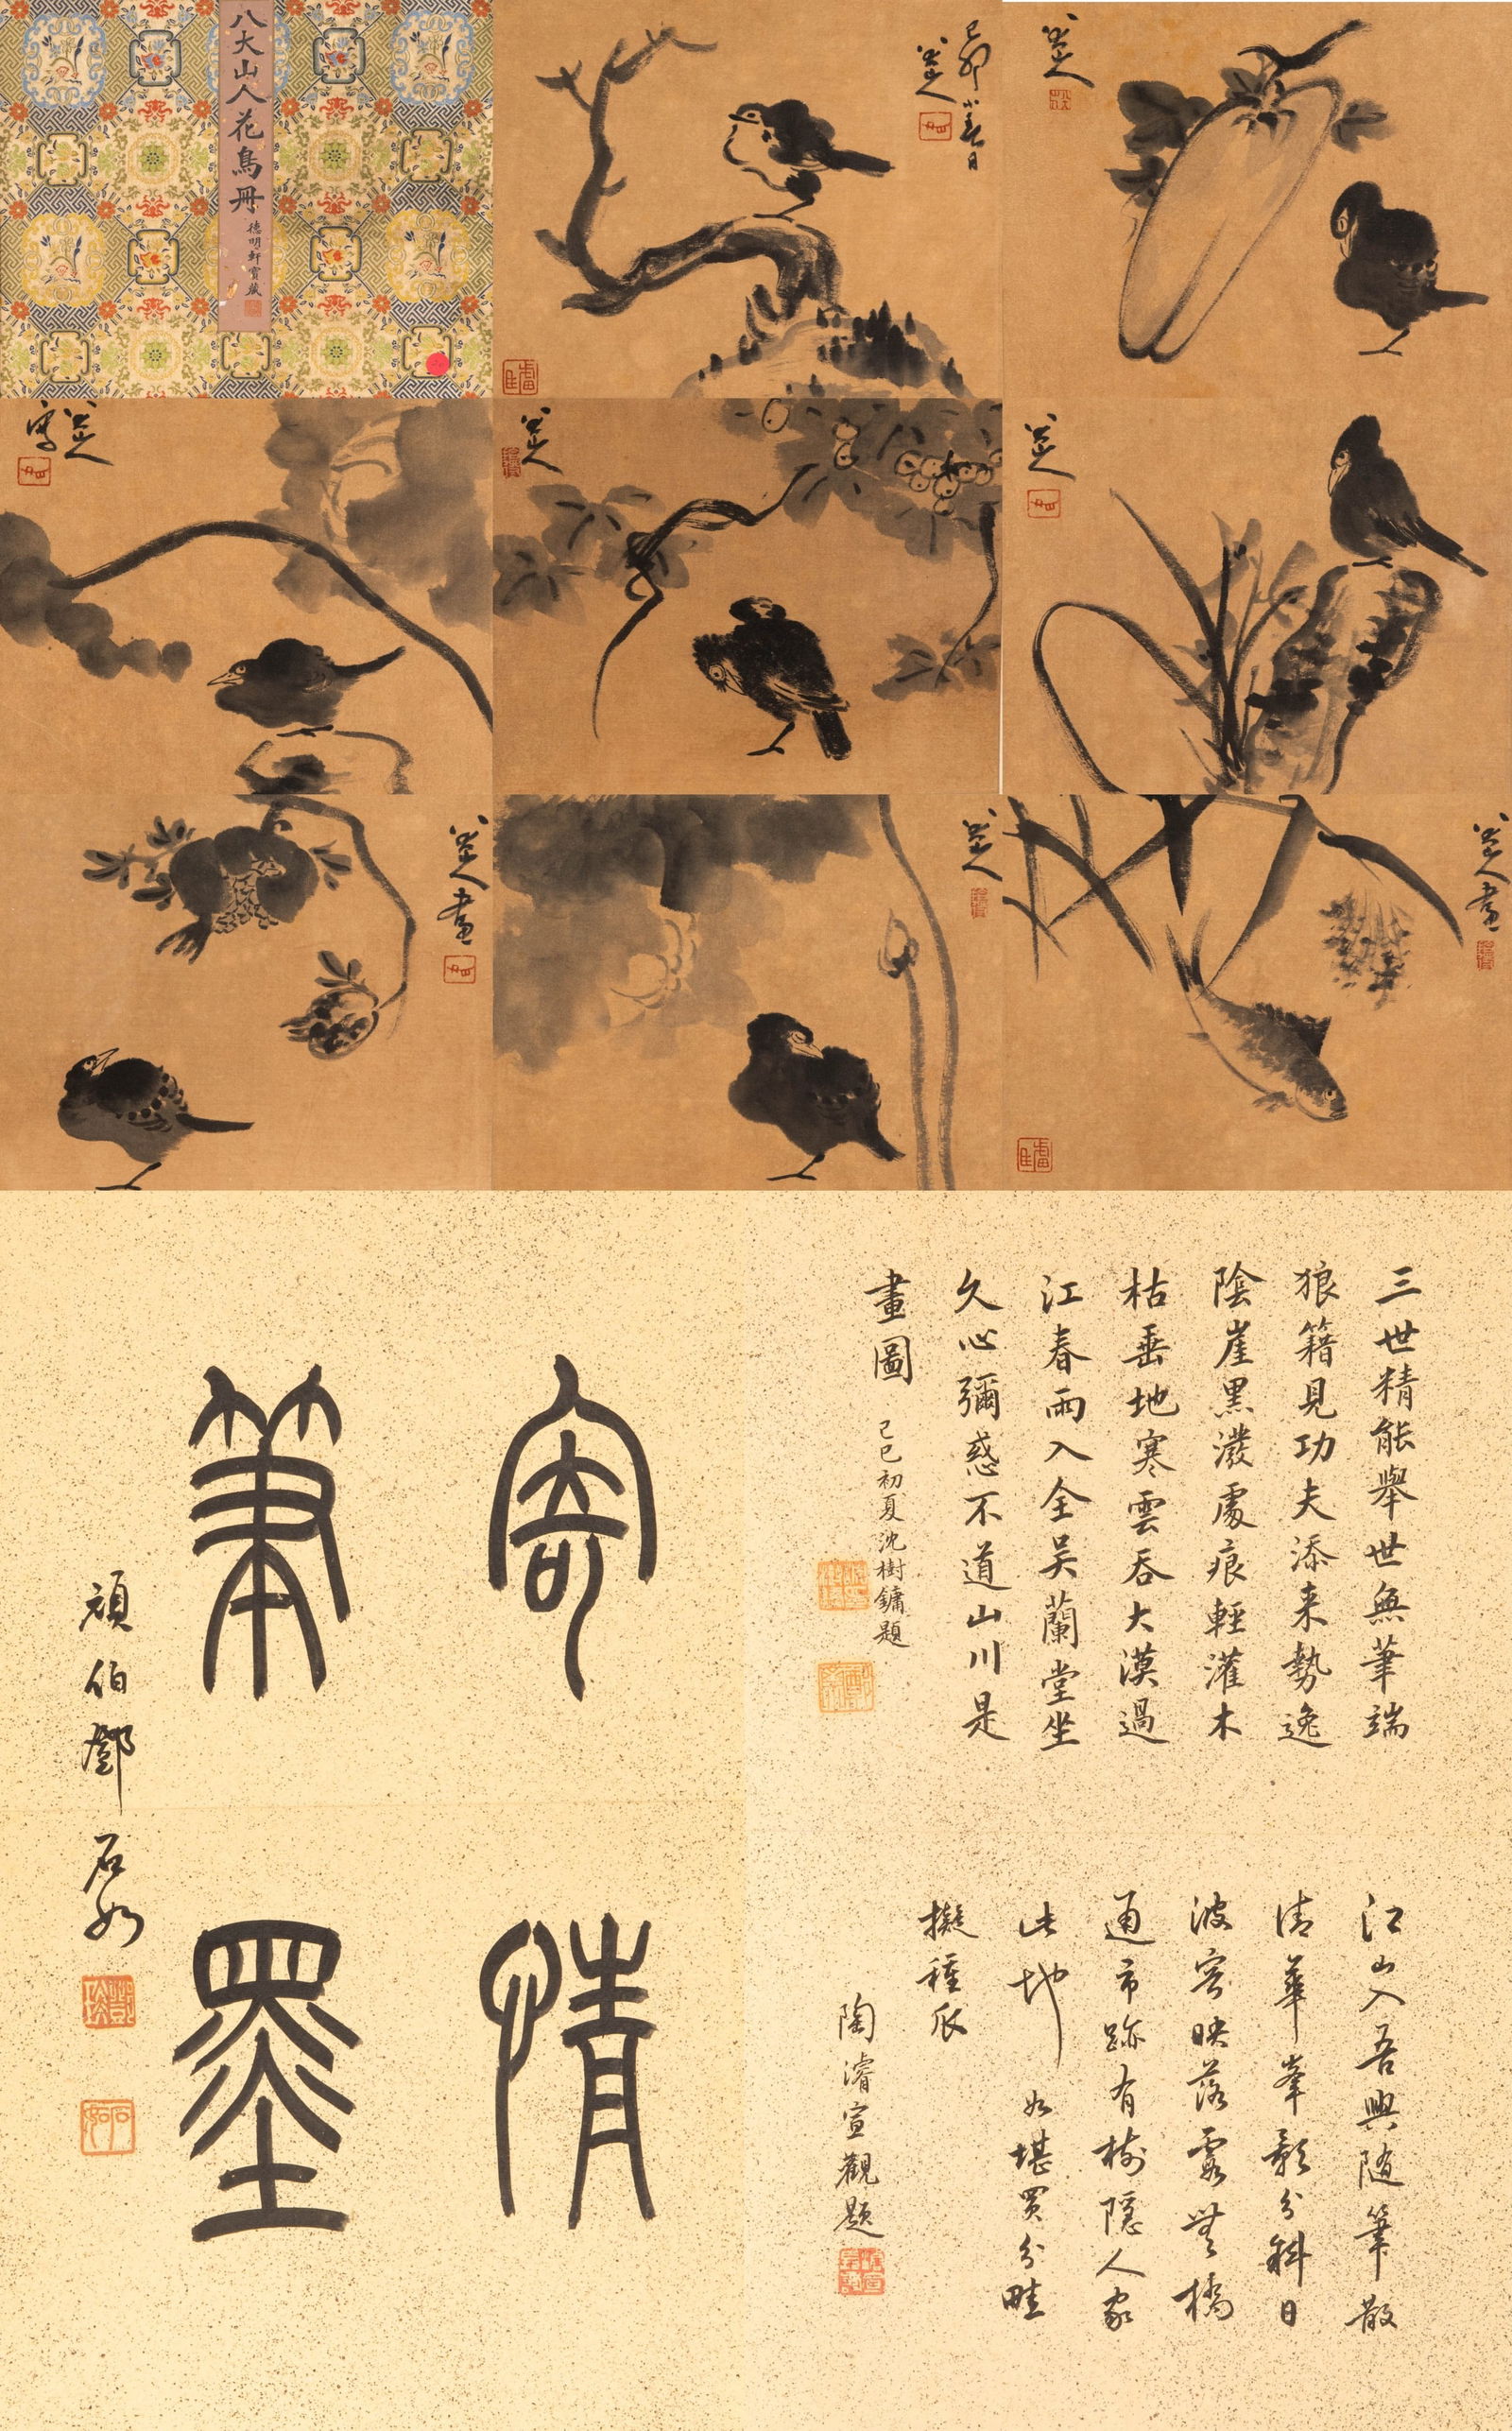 八大山人花鳥冊
德明軒賞藏
己卯小春日
八大山人
八大山人
八大山人寫
八大山人
八大山人
八大山人畫
八大山人
八大山人畫
三世精能舉世無筆端
狼籍見功夫添来勢逸
陰崖黑潑處痕輕灌木
枯垂地寒雲吞大漠過
江春雨入全吴蘭堂坐
久心彌惑不道山川是
畫圖
己巳初夏沈樹鏞題
寄
情
筆
墨
頑伯鄧石如
江山入吾興随筆散
清華峯影分斜日
波容映落霞橋
通市跡有樹隱人家
此地如堪買分畦
擬種瓜
陶濬宣觀題